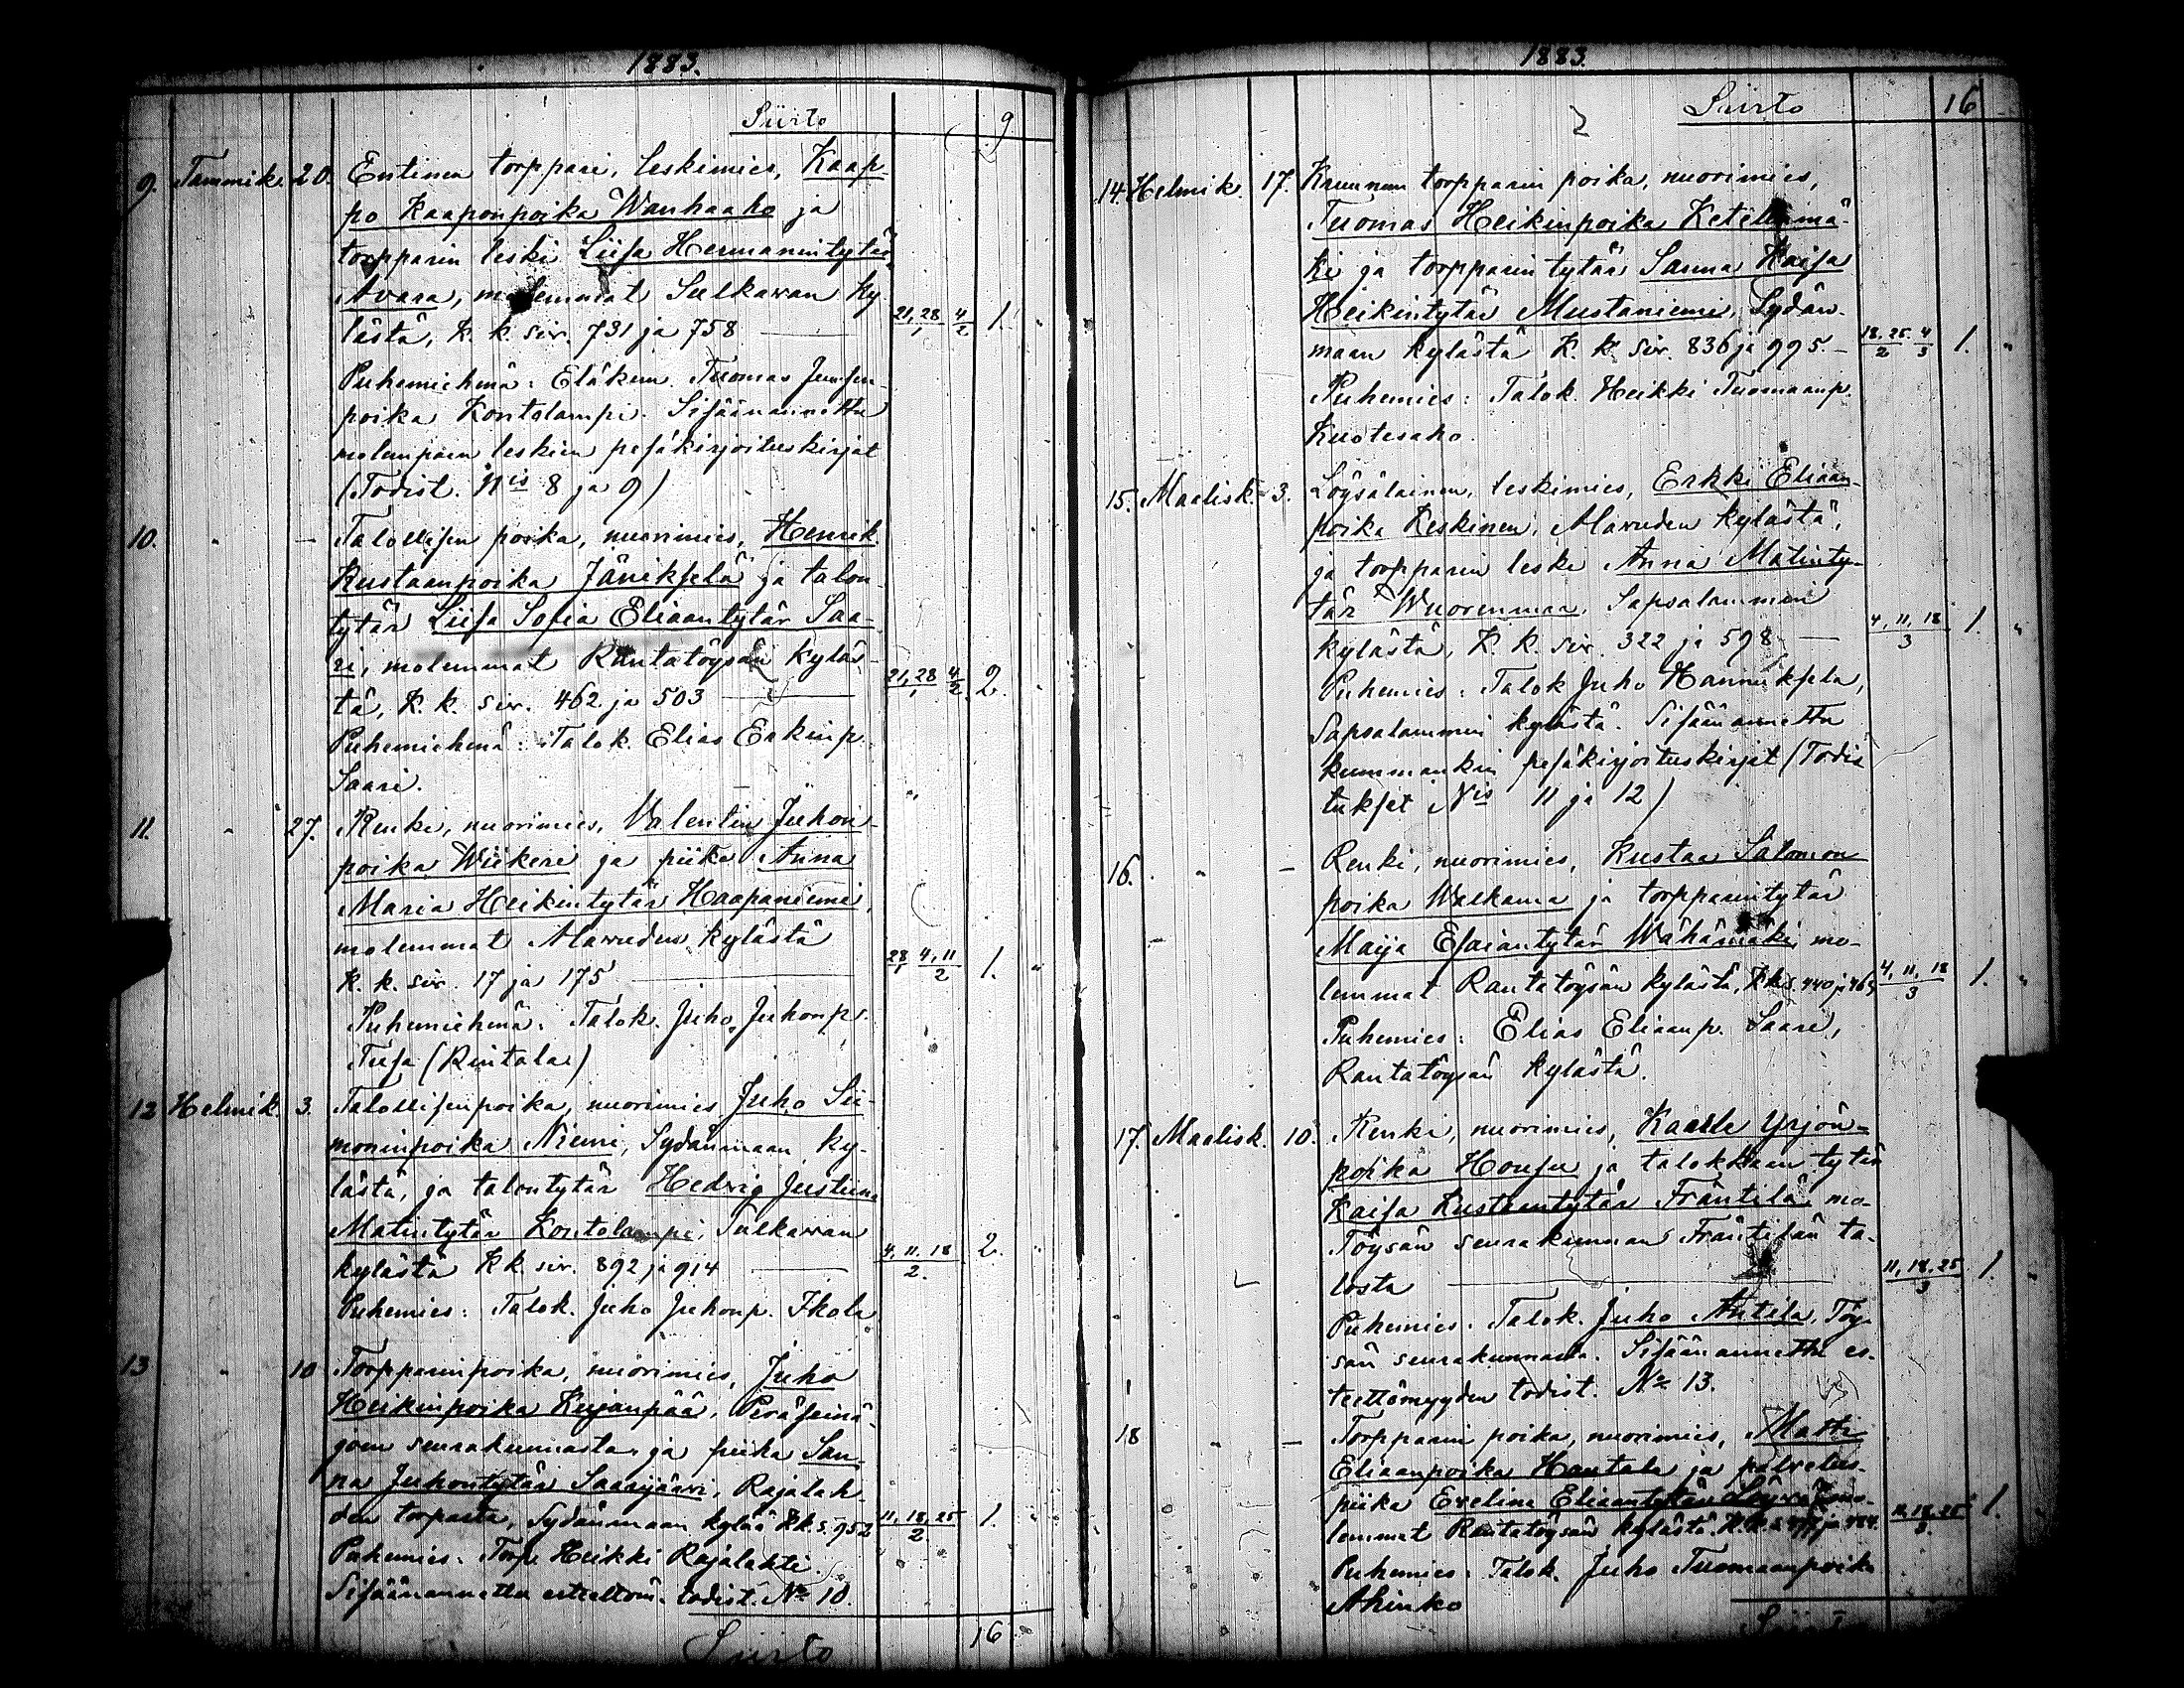 1883.
Siirto 9
9. Tammik. 20. Entinen torppari, leskimies, Kaap-
po Kaaponpoika Wanhaaho ja
torpparin leski Liisa Hermannintytär
Avara, molemmat Sulkawan ky-
lästä, K. k. siv. 731 ja 758 — 21, 28/1 4/2 1. "
Puhemiehenä: Eläkem. Tuomas
poika Kontolampi. Sisäänannettu
molempien leskien pesäkirjoituskirjat
(Todist. Nis 8 ja 9)
10. " — Talollisen poika, nuorimies, Henrik
Kustaanpoika Jänikselä ja talon-
tytär Liisa Sofia Eliaantytär Saa-
ri, molemmat Rantatöysän kyläs-
tä, K. k. siv. 462 ja 503 — 21, 28/1 4/2 2. "
Puhemiehenä: Talok. Elias Erkinp.
Saari.
11. " 27. Renki, nuorimies, Valentin Juhon-
poika Wiikeri ja piika Anna
Maria Heikintytär Haapaniemi,
molemmat Alavuden kylästä
K. k. siv. 17 ja 175 — 28/1 4, 11/2 1. "
Puhemiehenä: Talok. Juho Juhonp.
Tusa (Rintala)
12 Helmik. 3. Talollisenpoika, nuorimies Juho Sii-
moninpoika Niemi, Sydänmaan ky-
lästä, ja talontytär Hedvig Justiina
Matintytär Kontolampi, Sulkawan
kylästä K k. siv. 892 ja 914 — 4, 11, 18/2. 2. "
Puhemies: Talok. Juho Juhonp. Ikola.
13 " 10 Torpparinpoika, nuorimies, Juho
Heikinpoika Kujanpää, Peräseinä-
joen seurakunnasta ja piika San-
na Juhontytär Saarijärvi, Rajalah-
den torpasta, Sydänmaan kylää K.k. s. 952 11, 18, 25/2 1. "
Puhemies: Torp. Heikki Rajalahti.
Sisäänannettu esteettöm. todist. No 10.
Siirto 16
1883.
Siirto 16
14. Helmik. 17. Kruunun torpparin poika, nuorimies,
Tuomas Heikinpoika Ketelinmä-
ki ja torpparin tytär Sanna Kaisa
Heikintytär Mustaniemi, Sydän-
maan kylästä K. k. siv. 836 ja 995. — 18, 25/2 4/3 1. "
Puhemies: Talok. Heikki Tuomaanp.
Kuotesaho.
15. Maalisk. 3. Löysäläinen, leskimies, Erkki Eliaan-
poika Keskinen, Alavuden kylästä,
ja torpparin leski Anna Matinty-
tär Wuorenmaa, Sapsalammin
kylästä, K. k. siv. 322 ja 598 — 4, 11, 18/3 1. "
Puhemies: Talok Juho Hannuksela,
Sapsalammin kylästä. Sisäänannettu
kummankin pesäkirjoituskirjat (Todis
tukset Nis 11 ja 12)
16. " — Renki, nuorimies, Kustaa Salomon
poika Walkama ja torpparintytär
Maija Esaiantytär Wähämäki mo-
lemmat Rantatöysän kylästä, K.k.s. 440 ja 465 4, 11, 18/3 1. "
Puhemies: Elias Eliaanp. Saari,
Rantatöysän kylästä.
17. Maalisk. 10. Renki, nuorimies, Kaarle Yrjön-
poika Honsu ja talokkaan tytär
Kaisa Kustaantytär Fräntilä mo-
Töysän seurakunnan Fräntilän ta-
losta — 11, 18, 25/3 1. "
Puhemies: Talok. Juho Antila, Töy-
sän seurakunnasta. Sisäänannettu es-
teettömyyden todist. No 13.
18 " — Torpparin poika, nuorimies, Matti
Eliaanpoika Hautala ja palvelus-
piika Evelina Eliaantytär mo-
lemmat Rantatöysän kylästä. ja 484. 11, 18, 25/3 1.
Puhemies: Talok. Juho Tuomaanpoika
Ahinko